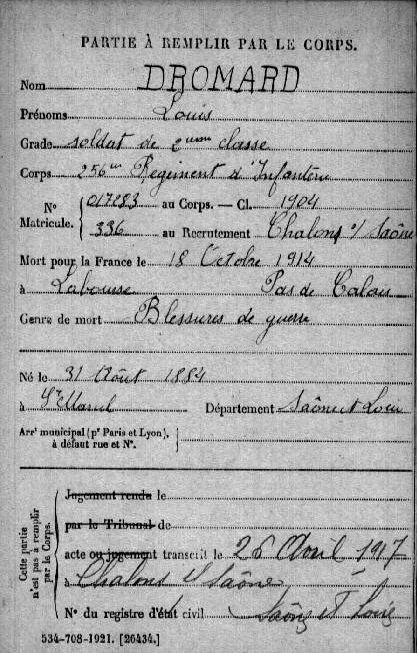 PARTIE À REMPLIR PAR LE CORPS.
Nom DROMARD
Prénoms Louis
Grade soldat de 2eme classe
Corps 256me Régiment d'Infanterie
N° Matricule. 017283 au Corps. — Cl. 1904
336 au Recrutement Chalons s/ Saône
Mort pour la France le 18 Octobre 1914
à Labourse Pas de Calais
Genre de mort Blessures de guerre
Né le 31 Août 1884
à St Marcel Département Saône et Loire
Arrt municipal (pr Paris et Lyon),
à défaut rue et N°.
Cette partie n'est pas à remplir par le Corps.
Jugement rendu le
par le Tribunal de
acte ou jugement transcrit le 26 Avril 1917
à Chalons s/ Saône
N° du registre d'état civil Saône et Loire
534-708-1921. [26434.]